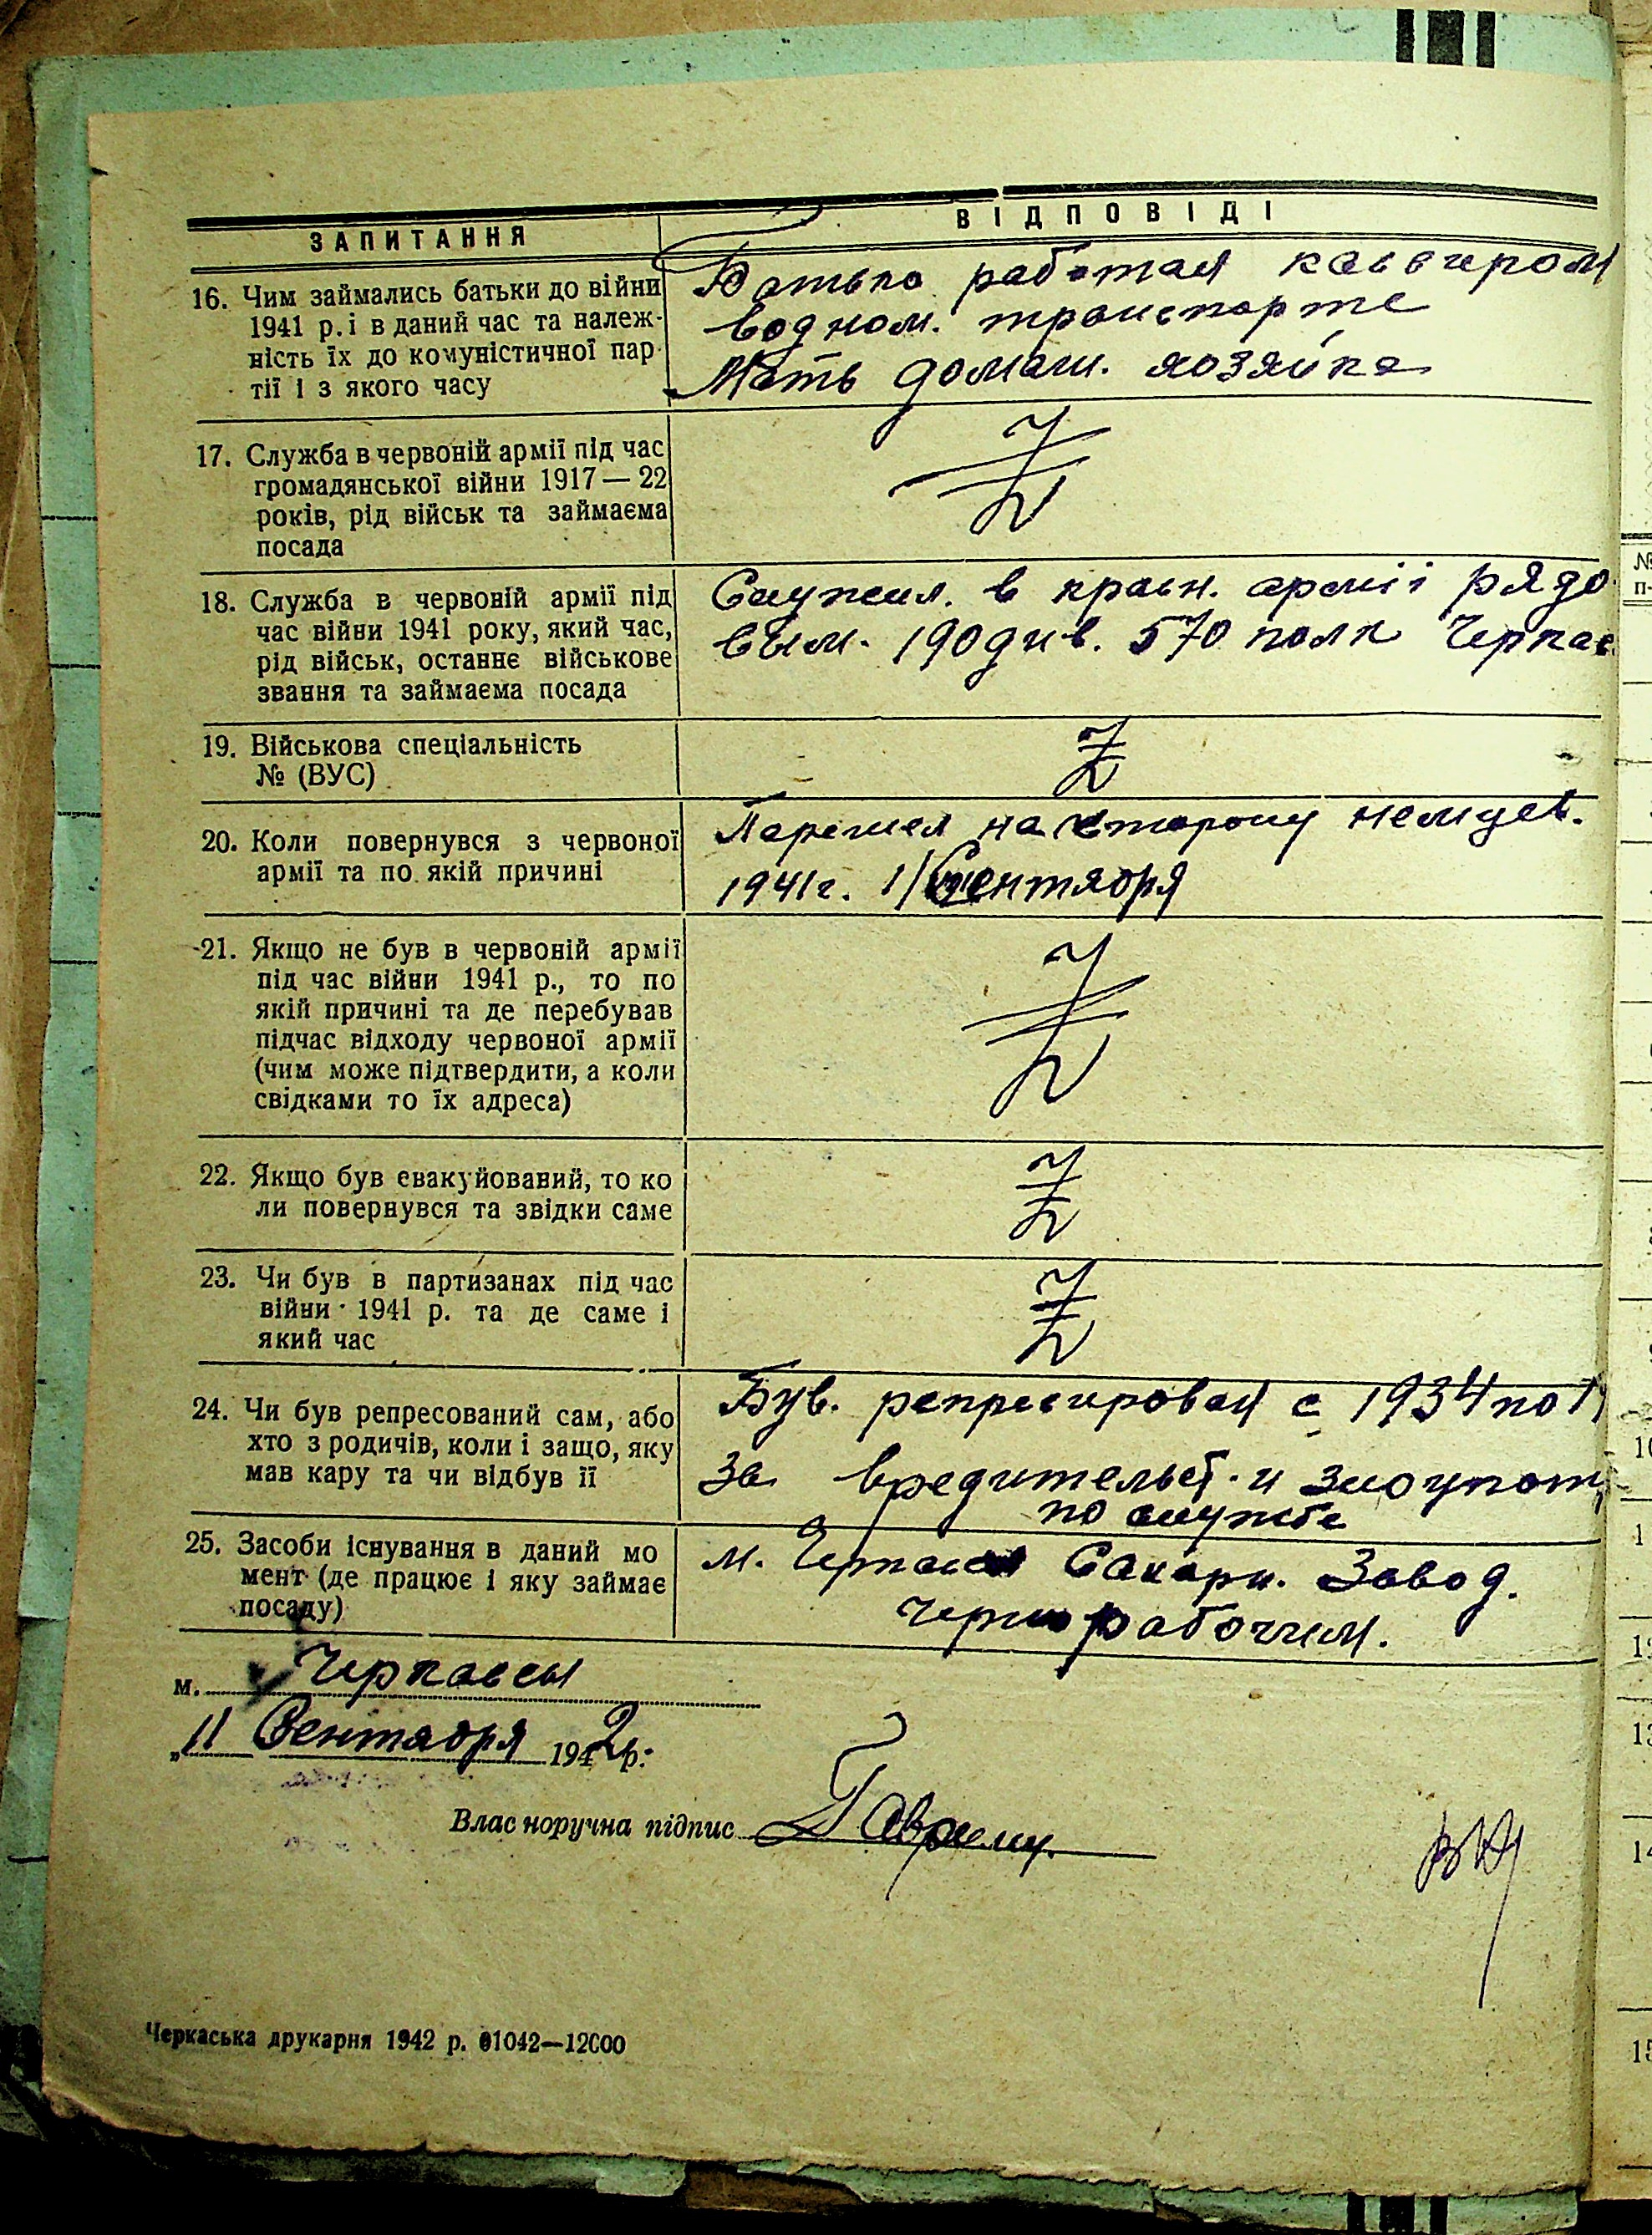 ЗАПИТАННЯ
ВІДПОВІДІ
16. Чим займались батьки до війни
1941 р. і в даний час та належ-
ність їх до комуністичної пар
тії і з якого часу
Батько работал кассиром
водном. транспорте
Мать домаш. хозяйка
17. Служба в червоній армії під час
громадянської війни 1917—22
років, рід військ та займаєма
посада
18. Служба в червоній армії під
час війни 1941 року, який час,
рід військ, останнє військове
звання та займаєма посада
Служил. в красн. армії рядо
вым. 190 див. 570 полк Черкас
19. Військова спеціальність
№ (ВУС)
20. Коли повернувся з червоної
армії та по якій причині
Парешел на сторону немцев.
1941г. 1/ Сентября
21. Якщо не був в червоній армії
під час війни 1941 р., то по
якій причині та де перебував
підчас відходу червоної армії
(чим може підтвердити, а коли
свідками то їх адреса)
22. Якщо був евакуйований, то ко
ли повернувся та звідки саме
23. Чи був в партизанах під час
війни 1941 р. та де саме і
який час
24. Чи був репресований сам, або
хто з родичів, коли і защо, яку
мав кару та чи відбув її
Був. репресирован с 1934 по 1
за вредительст. и злоупот
по службе
25. Засоби існування в даний мо
мент (де працює і яку займає
посаду)
м. Черкассы Сахарн. Завод.
чернорабочим.
м. Черкассы
„11 Сентября 1942р.
Власноручна підпис
Черкаська друкарня 1942 р. 01042—12000
№
п-
10
1
13
14
15